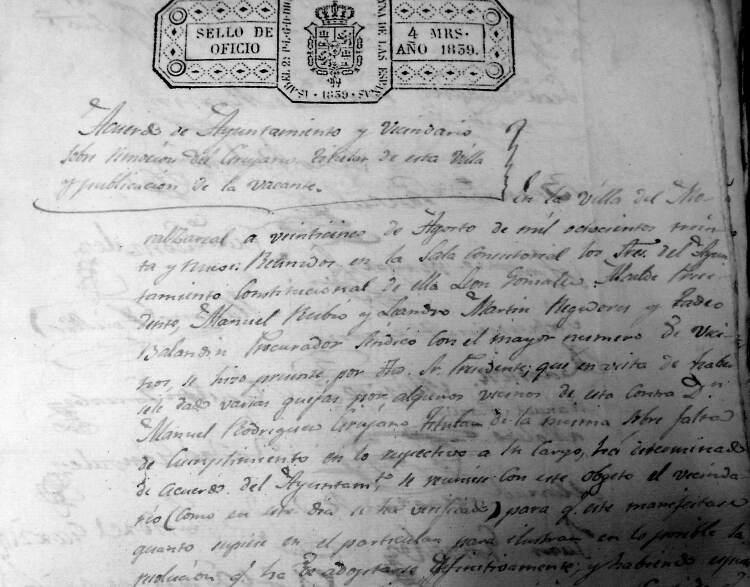 SELLO DE
OFICIO
4 MRS.
AÑO 1839.
ISABEL 2ª
1839
Acuerdo de Ayuntamiento y Vecindario
sobre remocion del Cirujano titular de esta villa
y publicacion de la vacante.
En la villa del Mo-
ralzarzal a veinticinco de Agosto de mil ochocientos trein-
ta y nueve: Reunidos en la Sala Consistorial los Sres. del Ayun-
tamiento Constitucional de ella Leon Gonzalez Alcalde Presi-
dente, Manuel Rubio y Leandro Martin Regidores y Tadeo
Balandin Procurador Sindico con el mayor numero de veci-
nos, se hizo presente por dho. Sr. Presidente; que en vista de haber-
sele dado varias quejas por algunos vecinos de esta contra Dn.
Manuel Rodriguez Cirujano titular de la misma sobre falta
de cumplimiento en lo respectivo a su cargo, ha determinado
de acuerdo del Ayuntamto. se reuniese con este objeto el vecinda-
rio (como en este dia se ha verificado) para q. este manifestase
quanto supiese en el particular para ilustrar en lo posible la
resolucion q. ha de adoptarse definitivamente; y habiendo